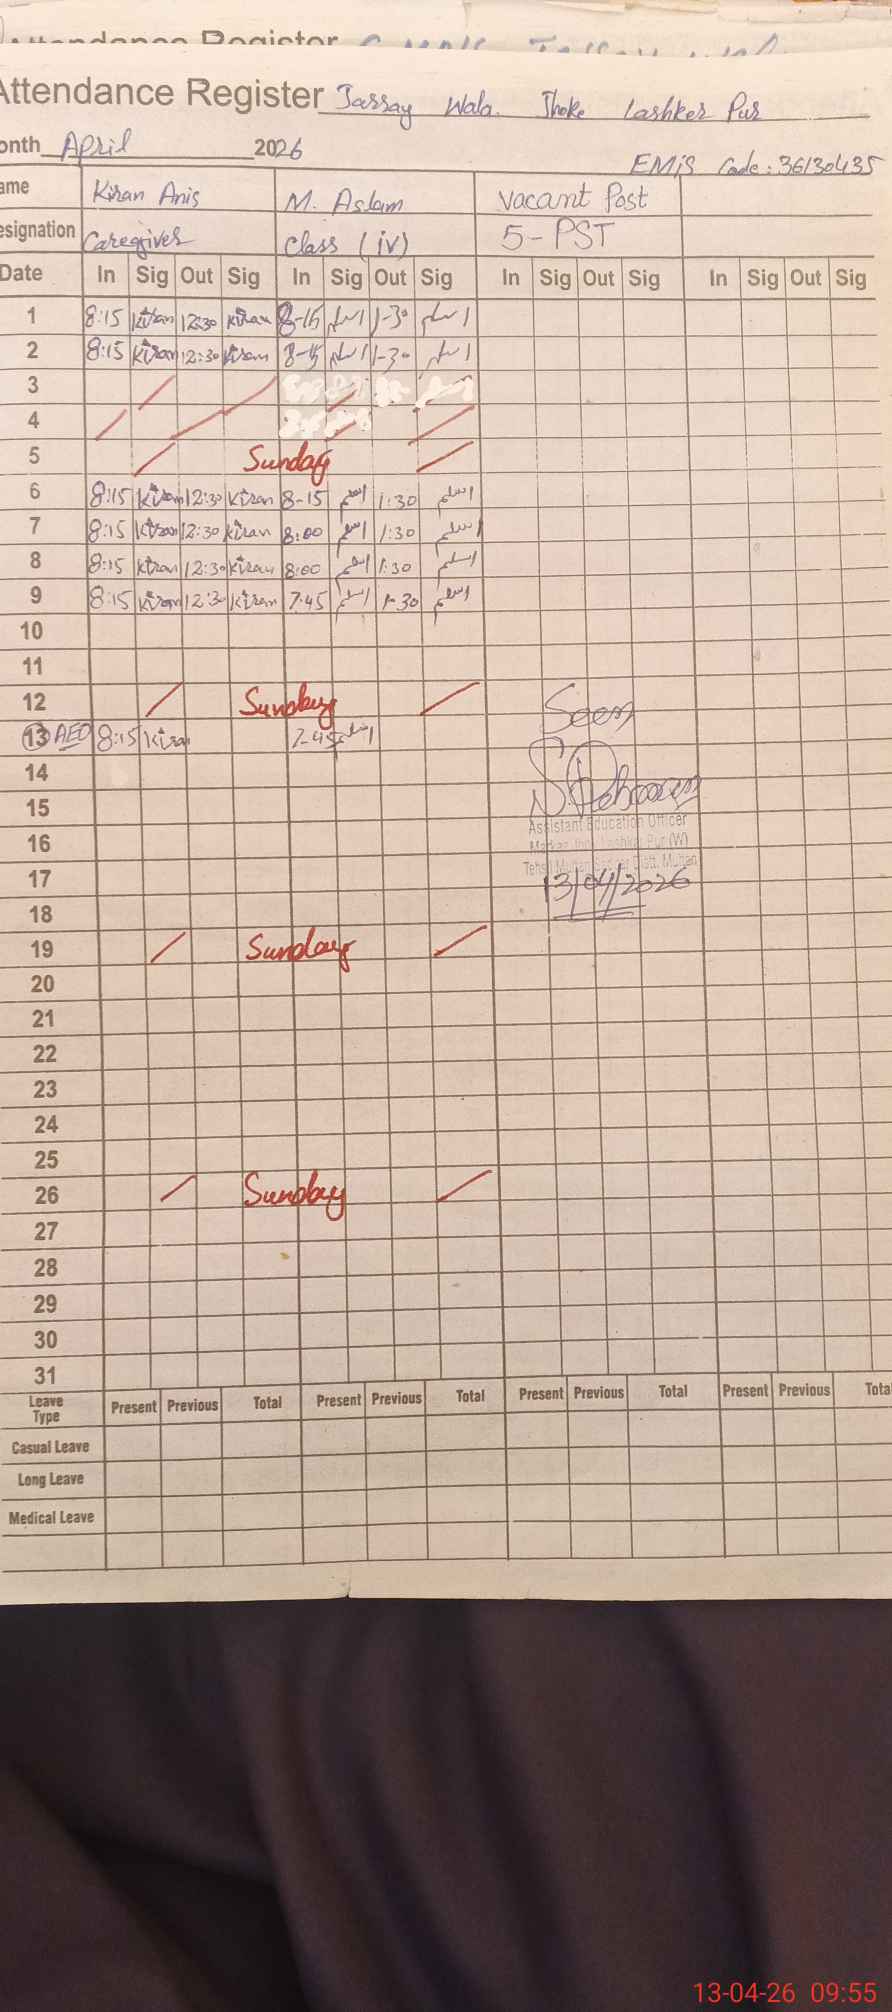 Attendance Register
Attendance Register Jassay Wala Jhoke Lashker Pur
onth April 2026
EMiS Code: 36130435
ame Kiran Anis M. Aslam Vacant Post
esignation Caregiver Class (iv) 5-PST
Date In Sig Out Sig In Sig Out Sig In Sig Out Sig In Sig Out Sig
1 8:15 Kiran 12:30 Kiran 8-15 اسلم 1-30 اسلم
2 8:15 Kiran 12:30 Kiran 8-15 اسلم 1-30 اسلم
3
4
5 Sunday
6 8:15 Kiran 12:30 Kiran 8-15 اسلم 1:30 اسلم
7 8:15 Kiran 12:30 Kiran 8:00 اسلم 1:30 اسلم
8 8:15 Kiran 12:30 Kiran 8:00 اسلم 1:30 اسلم
9 8:15 Kiran 12:30 Kiran 7:45 اسلم 1-30 اسلم
10
11
12 Sunday
Seen
13 AEO 8:15 Kiran 7-45 اسلم
14
15
Assistant Education Officer
16
Markaz Jhok Lashkar Pur (W)
Tehsil Multan Saddar Distt. Multan
17
13/04/2026
18
19 Sunday
20
21
22
23
24
25
26 Sunday
27
28
29
30
31
Leave Type Present Previous Total Present Previous Total Present Previous Total Present Previous Tota
Casual Leave
Long Leave
Medical Leave
13-04-26 09:55